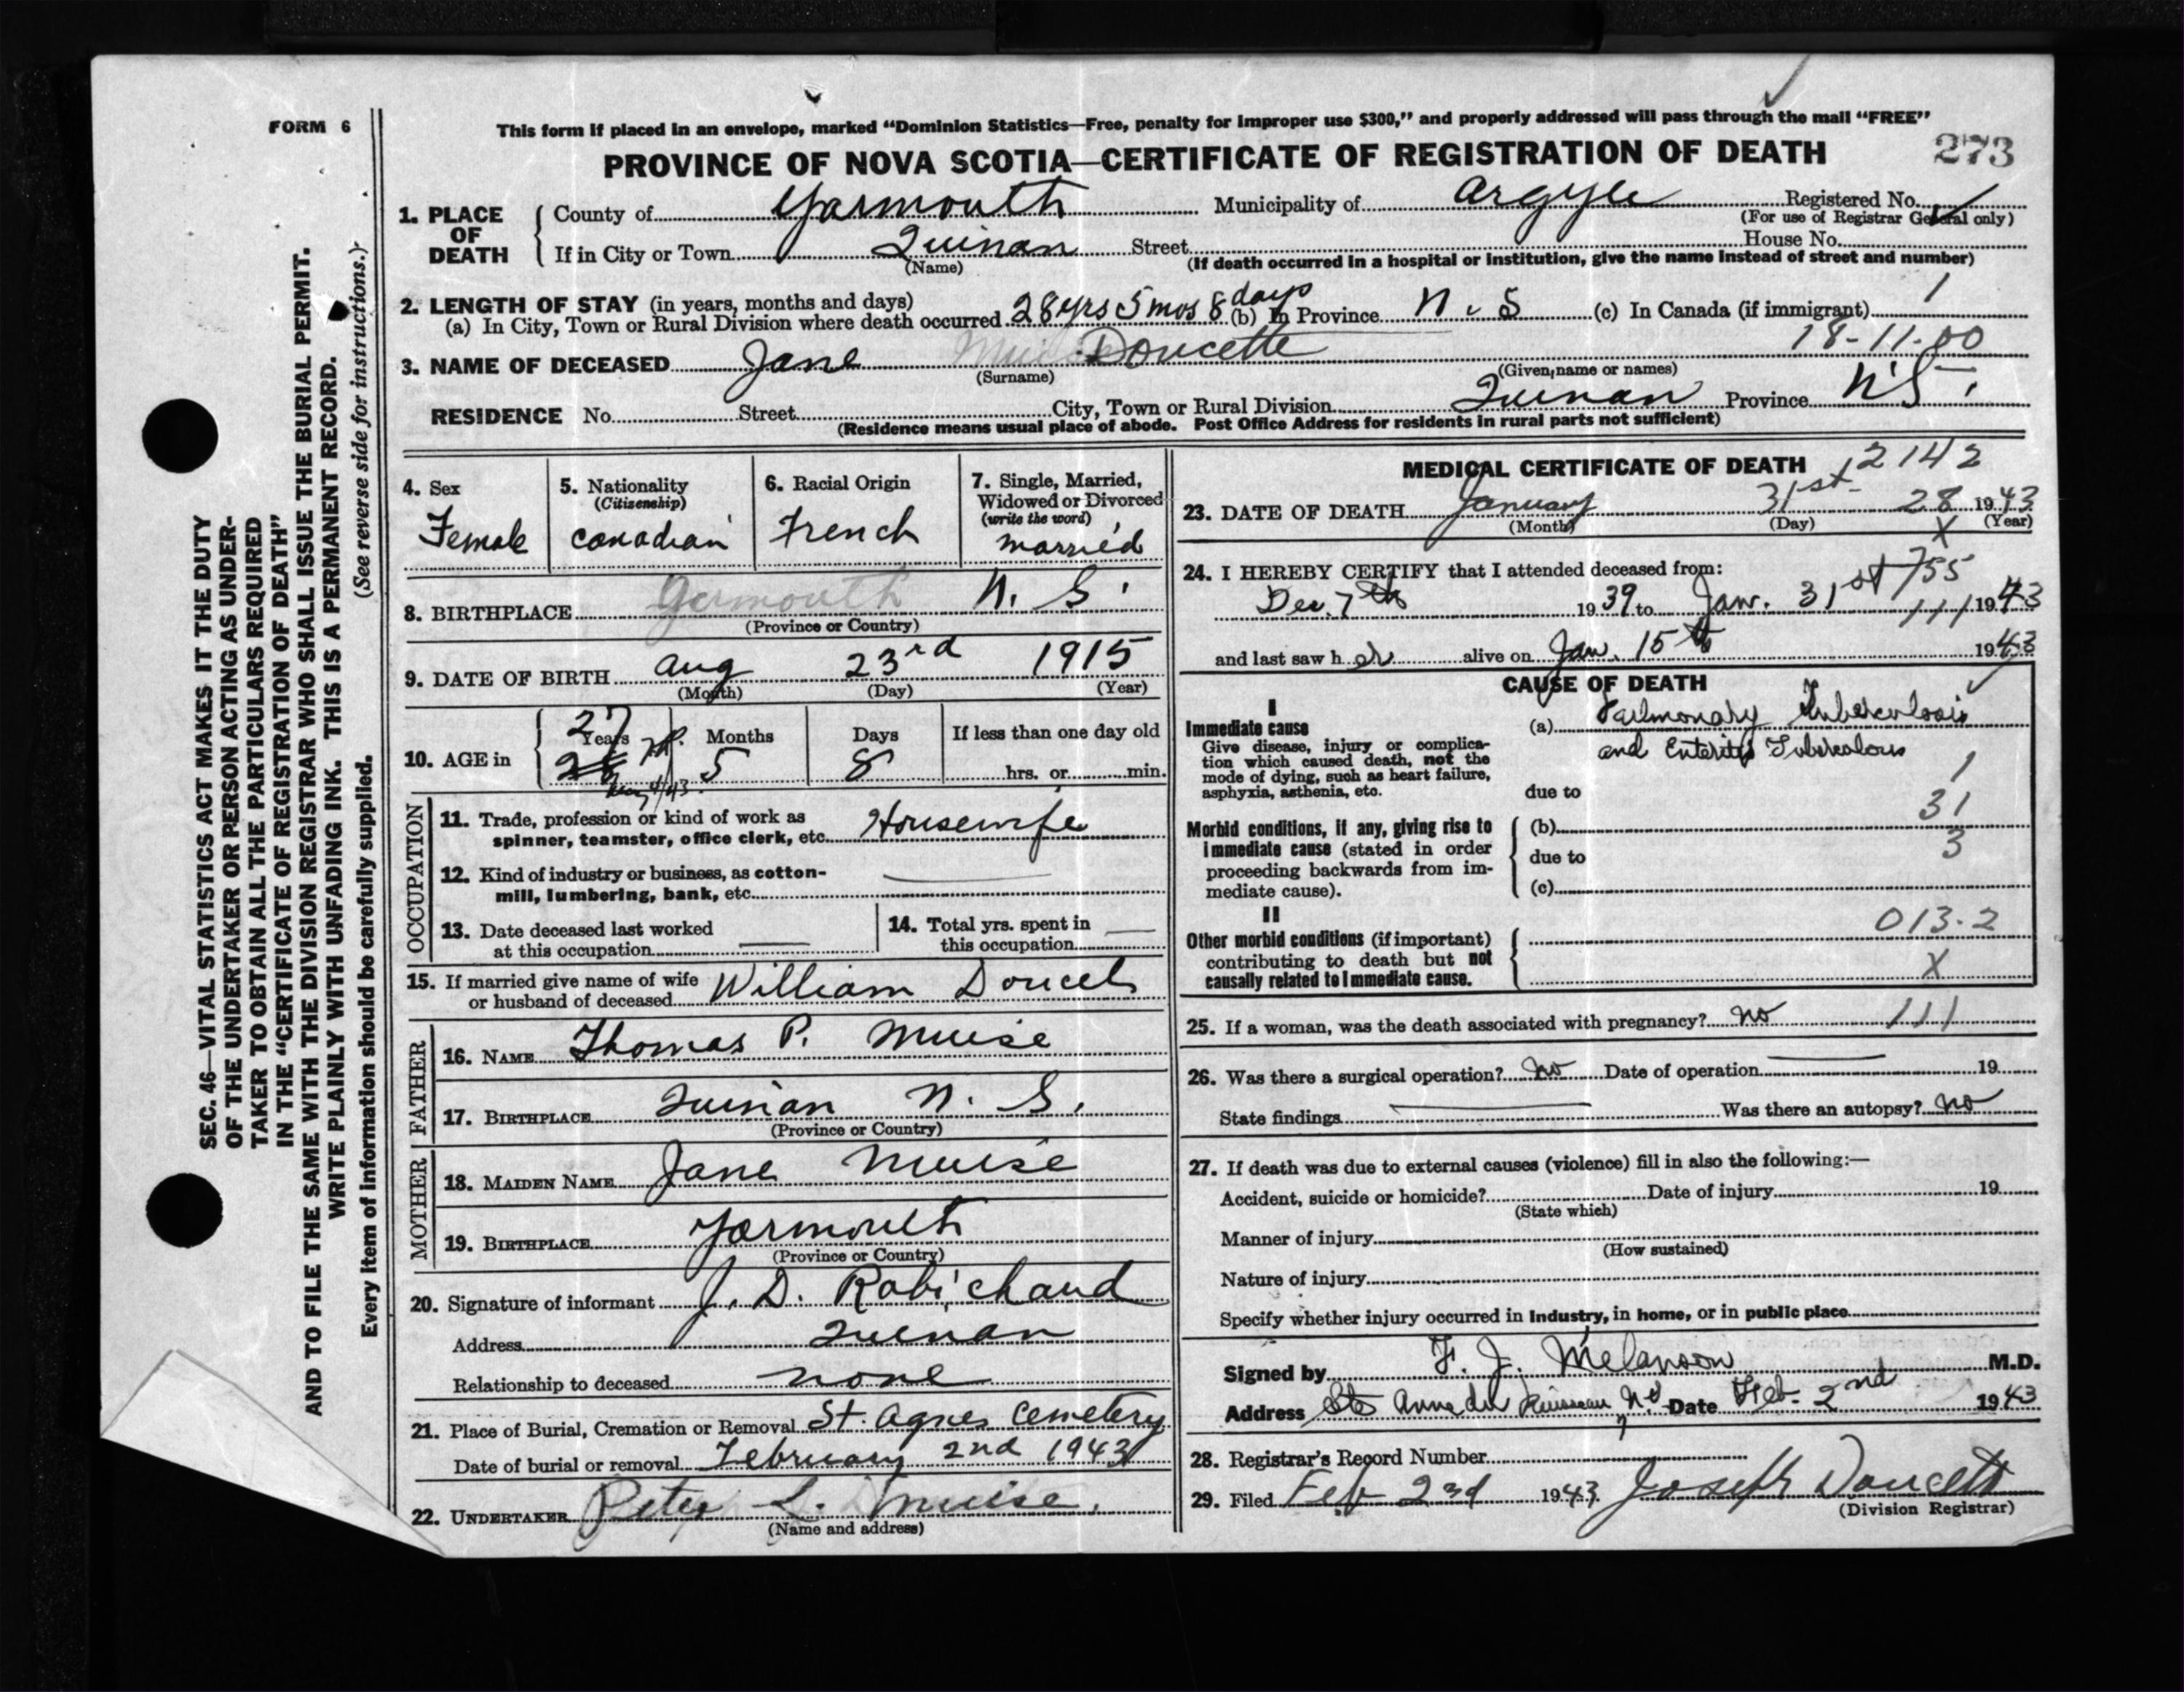 FORM 6
This form if placed in an envelope, marked “Dominion Statistics—Free, penalty for improper use $300,” and properly addressed will pass through the mail “FREE”
PROVINCE OF NOVA SCOTIA—CERTIFICATE OF REGISTRATION OF DEATH
273
1. PLACE OF DEATH
County of Yarmouth Municipality of Argyle Registered No.
(For use of Registrar General only)
If in City or Town Quinan Street House No.
(Name) (If death occurred in a hospital or institution, give the name instead of street and number)
2. LENGTH OF STAY (in years, months and days)
(a) In City, Town or Rural Division where death occurred 28 yrs 5 mos 8 days (b) In Province N. S (c) In Canada (if immigrant) 1
18-11-00
3. NAME OF DECEASED Jane Doucette
(Surname) (Given name or names)
RESIDENCE No. Street City, Town or Rural Division Quinan Province N.S.
(Residence means usual place of abode. Post Office Address for residents in rural parts not sufficient)
4. Sex Female
5. Nationality (Citizenship) Canadian
6. Racial Origin French
7. Single, Married, Widowed or Divorced (write the word) married
8. BIRTHPLACE Yarmouth N. S.
(Province or Country)
9. DATE OF BIRTH Aug 23rd 1915
(Month) (Day) (Year)
10. AGE in 27 Years 5 Months 8 Days If less than one day old hrs. or min.
OCCUPATION
11. Trade, profession or kind of work as spinner, teamster, office clerk, etc. Housewife
12. Kind of industry or business, as cotton-mill, lumbering, bank, etc.
13. Date deceased last worked at this occupation
14. Total yrs. spent in this occupation
15. If married give name of wife or husband of deceased William Doucet
FATHER
16. NAME Thomas P. Muise
17. BIRTHPLACE Quinan N. S.
(Province or Country)
MOTHER
18. MAIDEN NAME Jane Muise
19. BIRTHPLACE Yarmouth
(Province or Country)
20. Signature of informant J. D. Robichaud
Address Quinan
Relationship to deceased none
21. Place of Burial, Cremation or Removal St. Agnes Cemetery
Date of burial or removal February 2nd 1943
22. UNDERTAKER Peter L. Muise
(Name and address)
MEDICAL CERTIFICATE OF DEATH
2142
23. DATE OF DEATH January 31st 28 1943
(Month) (Day) (Year)
X
24. I HEREBY CERTIFY that I attended deceased from:
755
Dec. 7th 1939 to Jan. 31st 1943
111
and last saw her alive on Jan. 15th 1943
CAUSE OF DEATH
I
Immediate cause
Give disease, injury or complication which caused death, not the mode of dying, such as heart failure, asphyxia, asthenia, etc.
(a) Pulmonary Tuberculosis
and Enteritis Tuberculous
1
due to
31
Morbid conditions, if any, giving rise to immediate cause (stated in order proceeding backwards from immediate cause).
(b)
3
due to
(c)
II
Other morbid conditions (if important) contributing to death but not causally related to immediate cause.
013.2
X
25. If a woman, was the death associated with pregnancy? no 111
26. Was there a surgical operation? no Date of operation 19
State findings Was there an autopsy? no
27. If death was due to external causes (violence) fill in also the following:—
Accident, suicide or homicide? Date of injury 19
(State which)
Manner of injury
(How sustained)
Nature of injury
Specify whether injury occurred in industry, in home, or in public place
Signed by F. J. Melanson M.D.
Address Ste Anne du Ruisseau N.S. Date Feb. 2nd 1943
28. Registrar's Record Number
29. Filed Feb 2nd 1943 Joseph Doucett
(Division Registrar)
SEC. 46—VITAL STATISTICS ACT MAKES IT THE DUTY
OF THE UNDERTAKER OR PERSON ACTING AS UNDER-
TAKER TO OBTAIN ALL THE PARTICULARS REQUIRED
IN THE “CERTIFICATE OF REGISTRATION OF DEATH”
AND TO FILE THE SAME WITH THE DIVISION REGISTRAR WHO SHALL ISSUE THE BURIAL PERMIT.
WRITE PLAINLY WITH UNFADING INK. THIS IS A PERMANENT RECORD.
Every item of information should be carefully supplied. (See reverse side for instructions.)